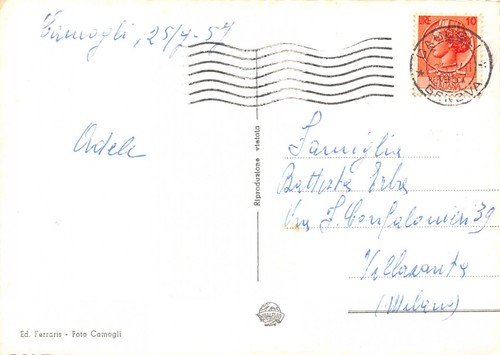 Camogli, 25/9-57
LIRE 10
CAMOGLI
1957
GENOVA
Adele
Riproduzione vietata
Famiglia
Battista Erba
Via F. Confalonieri 39
Villasanta
(Milano)
Ed. Ferraris - Foto Camogli